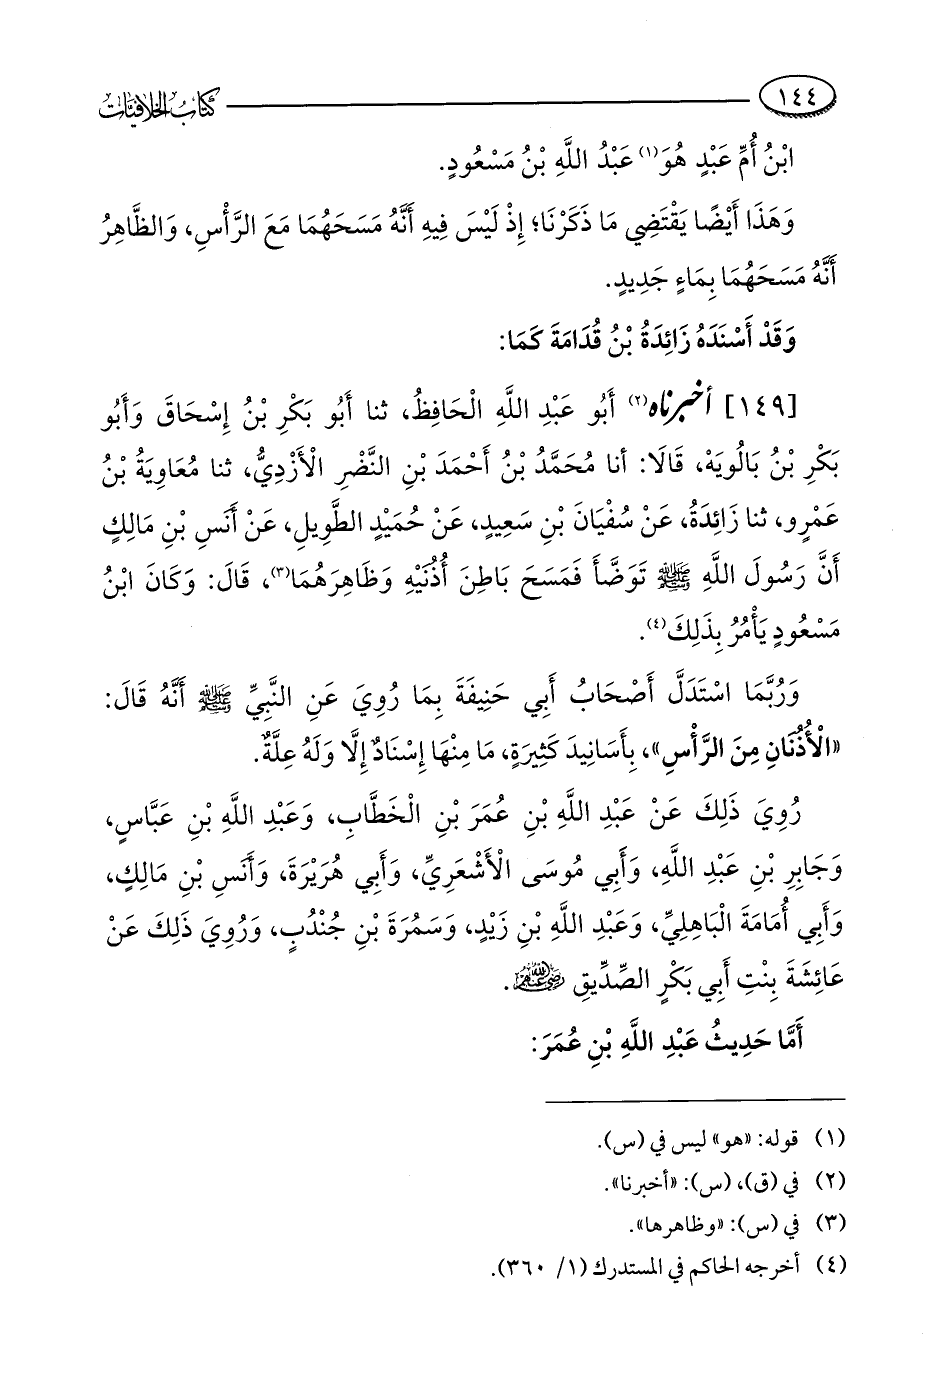 ١٤٤ كتاب الخلافيات
ابْنُ أُمِّ عَبْدٍ هُوَ(١) عَبْدُ اللَّهِ بْنُ مَسْعُودٍ.
وَهَذَا أَيْضًا يَقْتَضِي مَا ذَكَرْنَا؛ إِذْ لَيْسَ فِيهِ أَنَّهُ مَسَحَهُمَا مَعَ الرَّأْسِ، وَالظَّاهِرُ
أَنَّهُ مَسَحَهُمَا بِمَاءٍ جَدِيدٍ.
وَقَدْ أَسْنَدَهُ زَائِدَةُ بْنُ قُدَامَةَ كَمَا:
[١٤٩] أخبرناه(٢) أَبُو عَبْدِ اللَّهِ الْحَافِظُ، ثنا أَبُو بَكْرِ بْنُ إِسْحَاقَ وَأَبُو
بَكْرِ بْنُ بَالُويَهْ، قَالَا: أنا مُحَمَّدُ بْنُ أَحْمَدَ بْنِ النَّضْرِ الْأَزْدِيُّ، ثنا مُعَاوِيَةُ بْنُ
عَمْرٍو، ثنا زَائِدَةُ، عَنْ سُفْيَانَ بْنِ سَعِيدٍ، عَنْ حُمَيْدٍ الطَّوِيلِ، عَنْ أَنَسِ بْنِ مَالِكٍ
أَنَّ رَسُولَ اللَّهِ ﷺ تَوَضَّأَ فَمَسَحَ بَاطِنَ أُذُنَيْهِ وَظَاهِرَهُمَا(٣)، قَالَ: وَكَانَ ابْنُ
مَسْعُودٍ يَأْمُرُ بِذَلِكَ(٤).
وَرُبَّمَا اسْتَدَلَّ أَصْحَابُ أَبِي حَنِيفَةَ بِمَا رُوِيَ عَنِ النَّبِيِّ ﷺ أَنَّهُ قَالَ:
«الْأُذُنَانِ مِنَ الرَّأْسِ»، بِأَسَانِيدَ كَثِيرَةٍ، مَا مِنْهَا إِسْنَادٌ إِلَّا وَلَهُ عِلَّةٌ.
رُوِيَ ذَلِكَ عَنْ عَبْدِ اللَّهِ بْنِ عُمَرَ بْنِ الْخَطَّابِ، وَعَبْدِ اللَّهِ بْنِ عَبَّاسٍ،
وَجَابِرِ بْنِ عَبْدِ اللَّهِ، وَأَبِي مُوسَى الْأَشْعَرِيِّ، وَأَبِي هُرَيْرَةَ، وَأَنَسِ بْنِ مَالِكٍ،
وَأَبِي أُمَامَةَ الْبَاهِلِيِّ، وَعَبْدِ اللَّهِ بْنِ زَيْدٍ، وَسَمُرَةَ بْنِ جُنْدُبٍ، وَرُوِيَ ذَلِكَ عَنْ
عَائِشَةَ بِنْتِ أَبِي بَكْرٍ الصِّدِّيقِ رضي الله عنهم.
أَمَّا حَدِيثُ عَبْدِ اللَّهِ بْنِ عُمَرَ:
(١) قوله: «هو» ليس في (س).
(٢) في (ق)، (س): «أخبرنا».
(٣) في (س): «وظاهرها».
(٤) أخرجه الحاكم في المستدرك (١/ ٣٦٠).